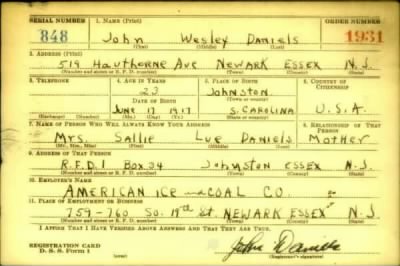 SERIAL NUMBER 1. NAME (Print) ORDER NUMBER
848 John Wesley Daniels 1931
(First) (Middle) (Last)
2. ADDRESS (Print)
519 Hawthorne Ave Newark Essex N.J.
(Number and street or R. F. D. number) (Town) (County) (State)
3. TELEPHONE 4. AGE IN YEARS 5. PLACE OF BIRTH 6. COUNTRY OF CITIZENSHIP
23 Johnston
DATE OF BIRTH (Town or county)
June 17 1917 S. Carolina U.S.A.
(Exchange) (Number) (Mo.) (Day) (Yr.) (State or country)
7. NAME OF PERSON WHO WILL ALWAYS KNOW YOUR ADDRESS 8. RELATIONSHIP OF THAT PERSON
Mrs. Sallie Lue Daniels Mother
(Mr., Mrs., Miss) (First) (Middle) (Last)
9. ADDRESS OF THAT PERSON
R.F.D.1 Box 34 Johnston Essex N.J.
(Number and street or R. F. D. number) (Town) (County) (State)
10. EMPLOYER'S NAME
American Ice and Coal Co
11. PLACE OF EMPLOYMENT OR BUSINESS
759-760 So. 19th St. Newark Essex N.J.
(Number and street or R. F. D. number) (Town) (County) (State)
I AFFIRM THAT I HAVE VERIFIED ABOVE ANSWERS AND THAT THEY ARE TRUE.
REGISTRATION CARD
D. S. S. Form 1
John Daniels
(Registrant's signature)